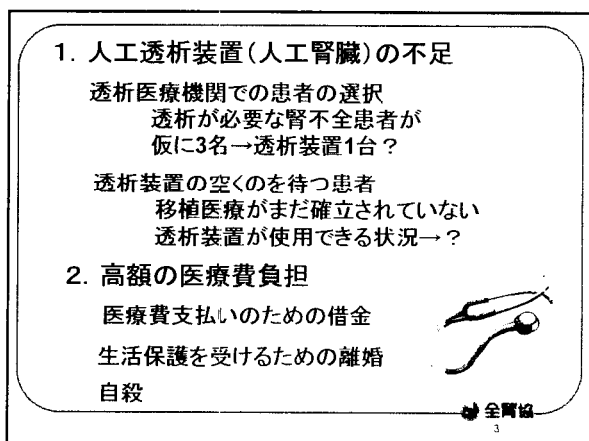 1. 人工透析装置(人工腎臓)の不足
透析医療機関での患者の選択
透析が必要な腎不全患者が
仮に3名→透析装置1台？
透析装置の空くのを待つ患者
移植医療がまだ確立されていない
透析装置が使用できる状況→？
2. 高額の医療費負担
医療費支払いのための借金
生活保護を受けるための離婚
自殺
全腎協
3